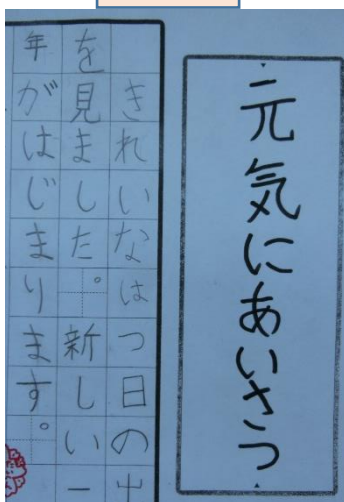 元気にあいさつ
きれいなはつ日の出
を見ました。新しい一
年がはじまります。